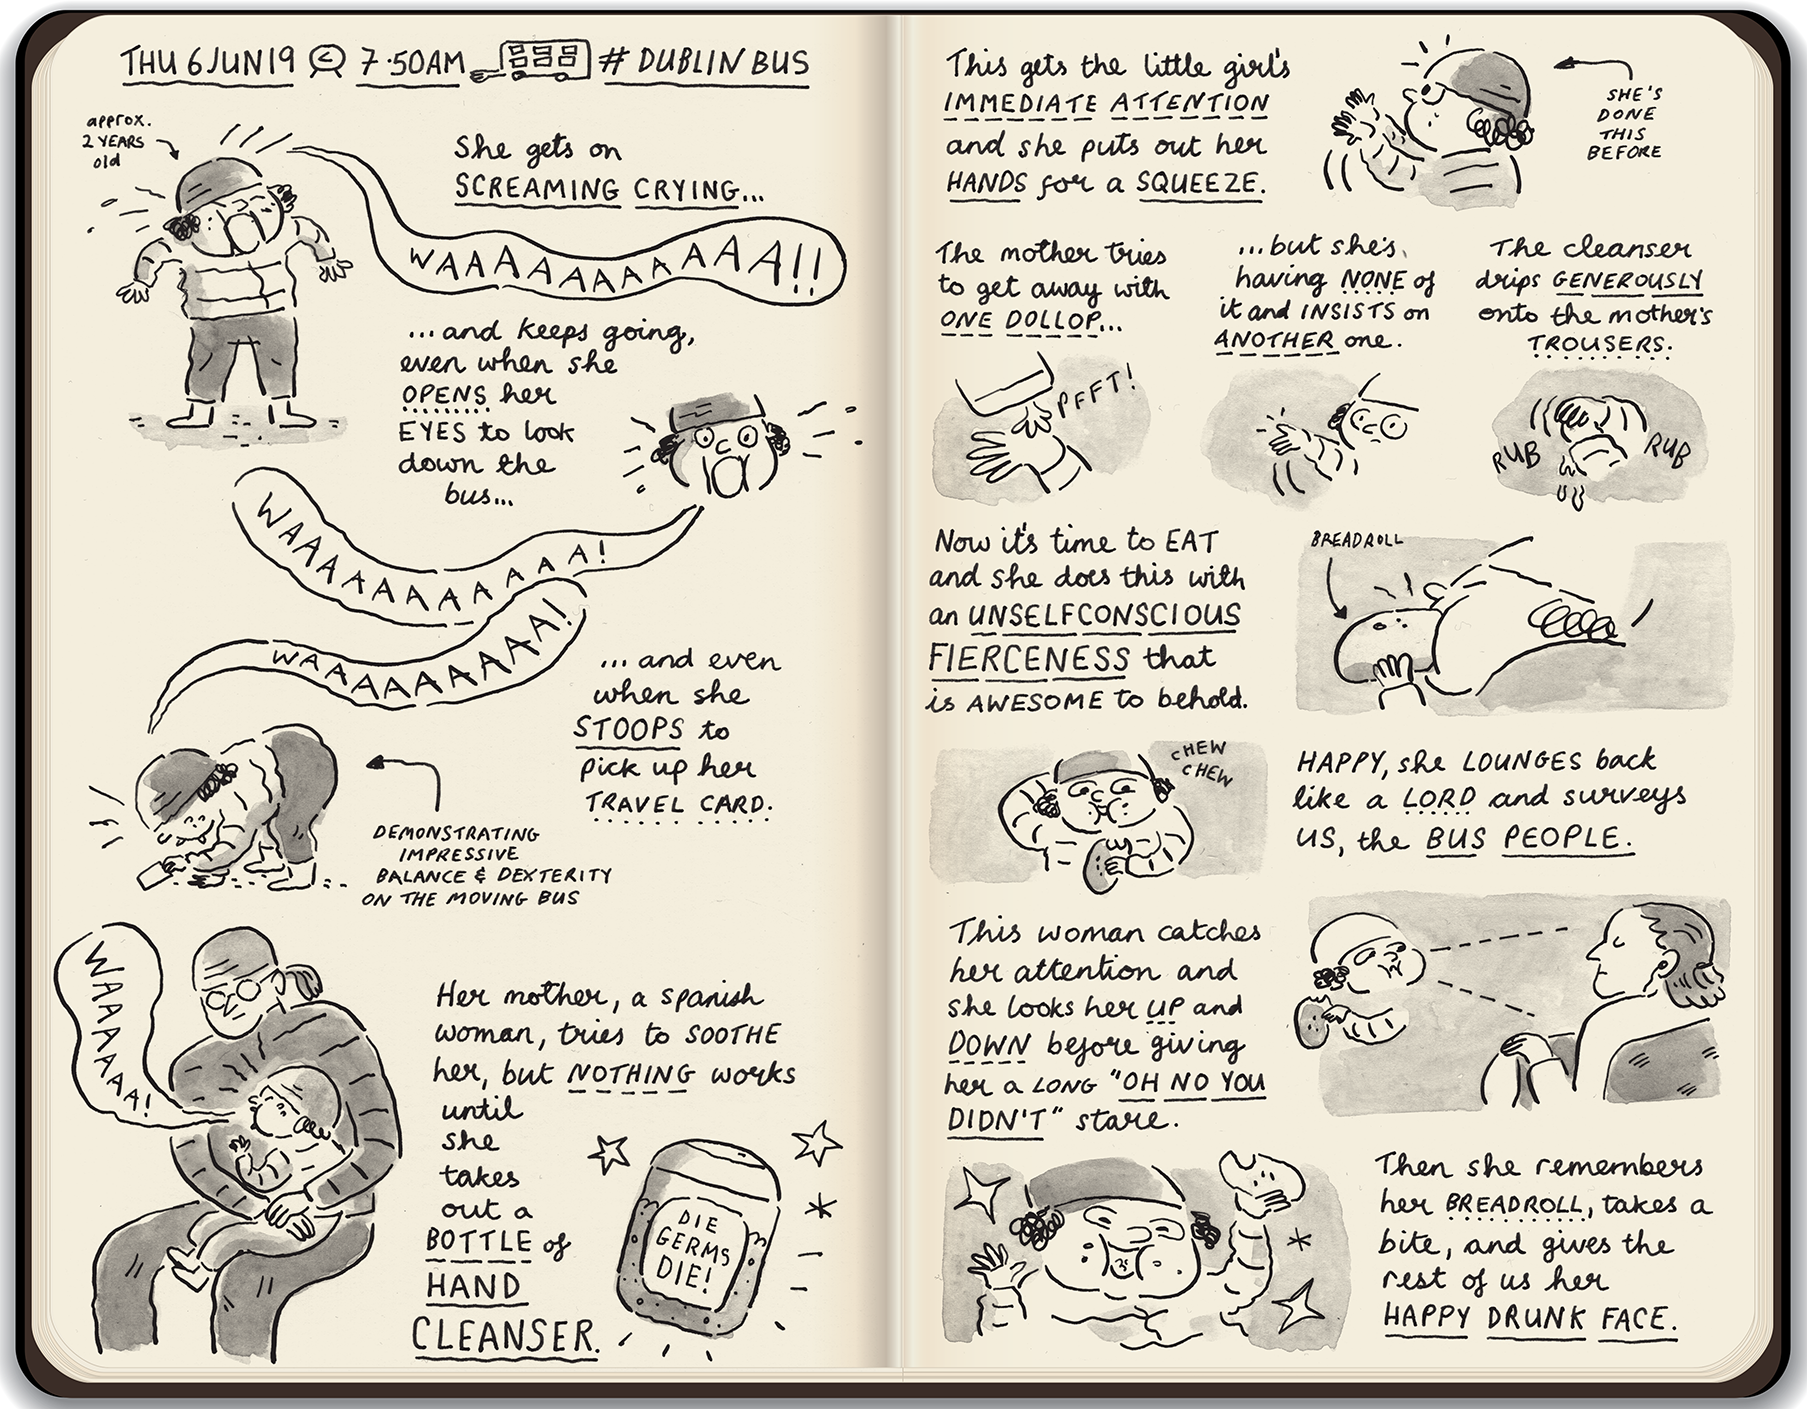 THU 6 JUN 19 7.50AM # DUBLIN BUS
approx.
2 YEARS
old
She gets on
SCREAMING CRYING...
WAAAAAAAAAAAA!!
...and keeps going,
even when she
OPENS her
EYES to look
down the
bus...
WAAAAAAAAAAAA!
WAAAAAAAAAAA!
...and even
when she
STOOPS to
pick up her
TRAVEL CARD.
DEMONSTRATING
IMPRESSIVE
BALANCE & DEXTERITY
ON THE MOVING BUS
WAAAAAA!
Her mother, a spanish
woman, tries to SOOTHE
her, but NOTHING works
until
she
takes
out a
BOTTLE of
HAND
CLEANSER.
DIE
GERMS
DIE!
This gets the little girl's
IMMEDIATE ATTENTION
and she puts out her
HANDS for a SQUEEZE.
SHE'S
DONE
THIS
BEFORE
The mother tries
to get away with
ONE DOLLOP...
PFFT!
...but she's
having NONE of
it and INSISTS on
ANOTHER one.
The cleanser
drips GENEROUSLY
onto the mother's
TROUSERS.
RUB
RUB
Now it's time to EAT
and she does this with
an UNSELFCONSCIOUS
FIERCENESS that
is AWESOME to behold.
BREADROLL
CHEW
CHEW
HAPPY, she LOUNGES back
like a LORD and surveys
US, the BUS PEOPLE.
This woman catches
her attention and
she looks her UP and
DOWN before giving
her a LONG "OH NO YOU
DIDN'T" stare.
Then she remembers
her BREADROLL, takes a
bite, and gives the
rest of us her
HAPPY DRUNK FACE.